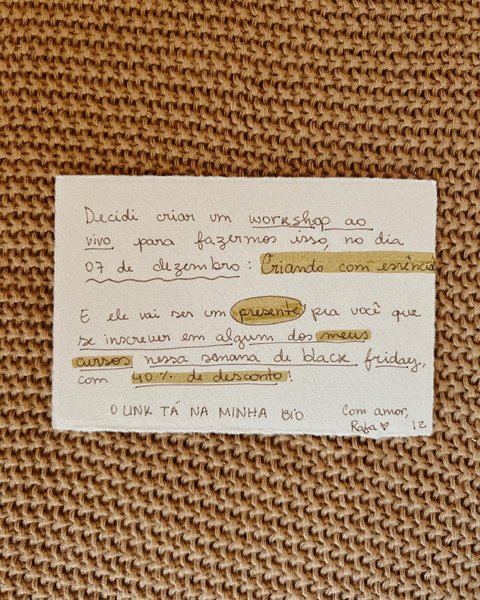 Decidi criar um workshop ao
vivo para fazermos isso, no dia
07 de dezembro: Criando com essência
E ele vai ser um presente pra você que
se inscrever em algum dos meus
cursos nessa semana de black friday,
com 40% de desconto!
O LINK TÁ NA MINHA BIO
Com amor,
Rafa ♥ 12